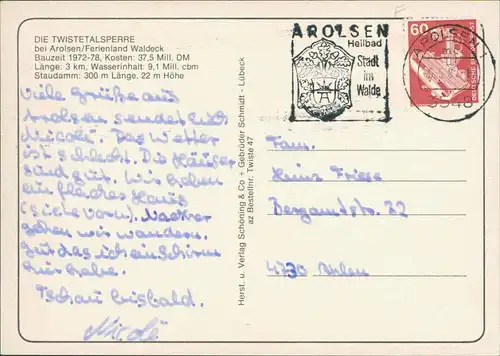 DIE TWISTETALSPERRE
bei Arolsen/Ferienland Waldeck
Bauzeit 1972-78, Kosten: 37,5 Mill. DM
Länge: 3 km, Wasserinhalt: 9,1 Mill. cbm
Staudamm: 300 m Länge, 22 m Höhe
Viele Grüße aus
Arolsen sendet Euch
Nicole. Das Wetter
ist schlecht. Die Häuser
sind gut. Wir haben
ein flaches Haus
(siehe vorn). Nachher
gehen wir wandern.
Gut das ich ein Schirm
hier habe.
Tschau bis bald.
Nicole
Herst. u. Verlag Schöning & Co + Gebrüder Schmidt - Lübeck
az Bestellnr. Twiste 47
AROLSEN
Heilbad
Stadt
im
Walde
60
DEUTSCHE BUNDESPOST
AROLSEN 1
Fam.
Heinz Friese
Bergamtstr. 22
4730 Ahlen